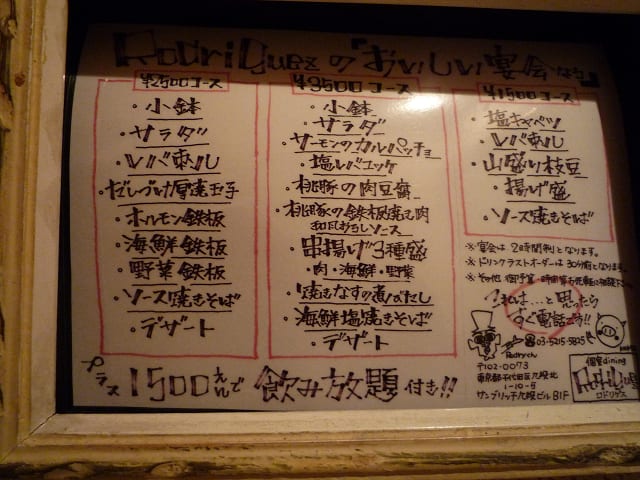 RodriGuezの「おいしい宴会なら」
¥2500コース
・小鉢
・サラダ
・レバ刺し
・だしづけ厚焼玉子
・ホルモン鉄板
・海鮮鉄板
・野菜鉄板
・ソース焼きそば
・デザート
¥3500コース
・小鉢
・サラダ
・サーモンのカルパッチョ
・塩レバユッケ
・桃豚の肉豆腐
・桃豚の鉄板焼き肉
和風おろしソース
・串揚げ3種盛
・肉・海鮮・野菜
・焼きなすの煮びたし
・海鮮塩焼きそば
・デザート
¥1500コース
・塩キャベツ
・レバ刺し
・山盛り枝豆
・揚げ盛
・ソース焼きそば
※宴会は2時間制となります。
※ドリンクラストオーダーは30分前となります。
※その他 御予算・時間等お気軽に
今夜は…と思ったら
すぐ電話だう!!
☎03-5215-5825
Rodryくん
〒102-0073
東京都千代田区九段北
1-10-5
サンブリッヂ九段ビルB1F
個室dining
RodriGuez
ロドリゲス
プラス1500えんで飲み放題付き!!